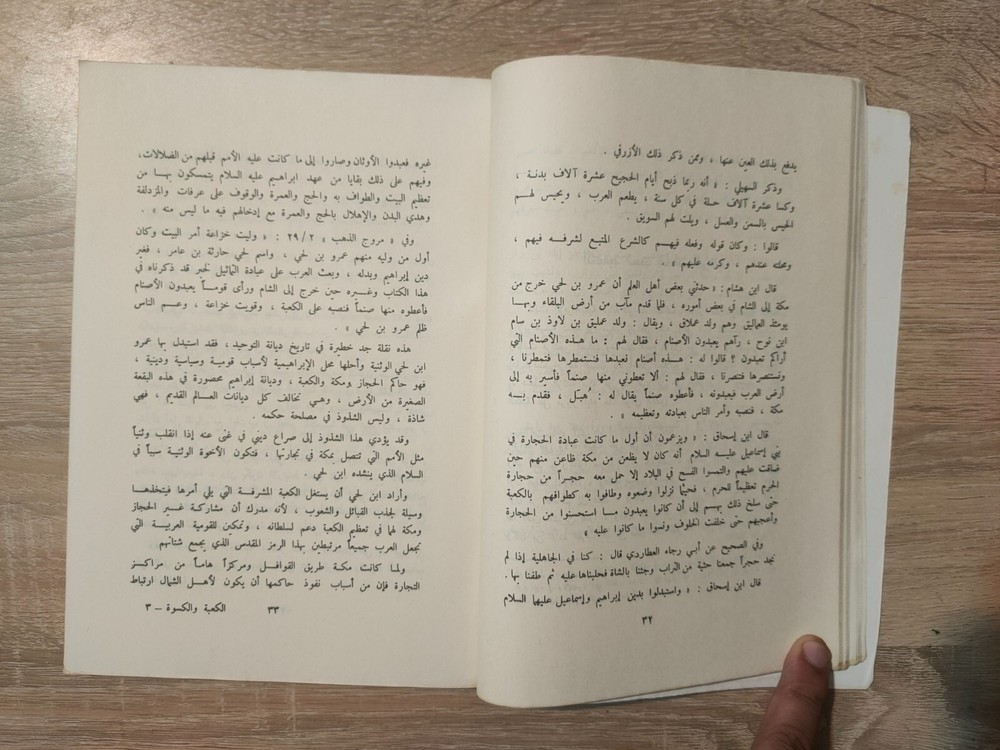 يدفع بذلك العين عنها ، وممن ذكر ذلك الأزرقي .
وذكر السهيلي : « أنه ربما ذبح أيام الحجيج عشرة آلاف بدنة ،
وكسا عشرة آلاف حلة في كل سنة ، يطعم العرب ، ويحيس لهم
الحيس بالسمن والعسل ، ويلت لهم السويق .
قالوا : وكان قوله وفعله فيهم كالشرع المتبع لشرفه فيهم ،
ومحلته عندهم ، وكرمه عليهم » .
قال ابن هشام : « حدثني بعض أهل العلم أن عمرو بن لحي خرج من
مكة إلى الشام في بعض أموره ، فلما قدم مآب من أرض البلقاء وبها
يومئذ العماليق وهم ولد عملاق ، ويقال : ولد عمليق بن لاوذ بن سام
ابن نوح ، رآهم يعبدون الأصنام ، فقال لهم : ما هذه الأصنام التي
أراكم تعبدون ؟ قالوا له : هذه أصنام نعبدها فنستمطرها فتمطرنا ،
ونستنصرها فتنصرنا ، فقال لهم : ألا تعطوني منها صنماً فأسير به إلى
أرض العرب فيعبدونه ، فأعطوه صنماً يقال له : هبل ، فقدم به
مكة ، فنصبه وأمر الناس بعبادته وتعظيمه » .
قال ابن إسحاق : « ويزعمون أن أول ما كانت عبادة الحجارة في
بني إسماعيل عليه السلام أنه كان لا يظعن من مكة ظاعن منهم حين
ضاقت عليهم والتمسوا الفسح في البلاد إلا حمل معه حجراً من حجارة
الحرم تعظيماً للحرم ، فحيثما نزلوا وضعوه وطافوا به كطوافهم بالكعبة
حتى سلخ ذلك بهم إلى أن كانوا يعبدون ما استحسنوا من الحجارة
وأعجبهم حتى خلفت الخلوف ونسوا ما كانوا عليه »
وفي الصحيح عن أبي رجاء العطاردي قال : كنا في الجاهلية إذا لم
نجد حجراً جمعنا حثية من التراب وجئنا بالشاة فحلبناها عليه ثم طفنا بها .
قال ابن إسحاق : « واستبدلوا بدين إبراهيم وإسماعيل عليهما السلام
٣٢
غيره فعبدوا الأوثان وصاروا إلى ما كانت عليه الأمم قبلهم من الضلالات،
وفيهم على ذلك بقايا من عهد ابراهيم عليه السلام يتمسكون بها من
تعظيم البيت والطواف به والحج والعمرة والوقوف على عرفات والمزدلفة
وهدي البدن والإهلال بالحج والعمرة مع إدخالهم فيه ما ليس منه » .
وفي « مروج الذهب » ٢/ ٢٩ : « وليت خزاعة أمر البيت وكان
أول من وليه منهم عمرو بن لحي ، واسم لحي حارثة بن عامر ، فغير
دين إبراهيم وبدله ، وبعث العرب على عبادة التماثيل لخبر قد ذكرناه في
هذا الكتاب وغيره حين خرج إلى الشام ورأى قوماً يعبدون الأصنام
فأعطوه منها صنماً فنصبه على الكعبة ، وقويت خزاعة ، وعم الناس
ظلم عمرو بن لحي » .
هذه نقلة جد خطيرة في تاريخ ديانة التوحيد ، فقد استبدل بها عمرو
ابن لحي الوثنية وأحلها محل الإبراهيمية لأسباب قومية وسياسية ودينية ،
فهو حاكم الحجاز ومكة والكعبة ، وديانة إبراهيم محصورة في هذه البقعة
الصغيرة من الأرض ، وهي تخالف كل ديانات العالم القديم ، فهي
شاذة ، وليس الشذوذ في مصلحة حكمه .
وقد يؤدي هذا الشذوذ إلى صراع ديني في غنى عنه إذا انقلب وثنياً
مثل الأمم التي تتصل بمكة في تجارتها ، فتكون الأخوة الوثنية سبباً في
السلام الذي ينشده ابن لحي .
وأراد ابن لحي أن يستغل الكعبة المشرفة التي يلي أمرها فيتخذها
وسيلة لجذب القبائل والشعوب ، لأنه مدرك أن مشاركة غير الحجاز
ومكة لهما في تعظيم الكعبة دعم لسلطانه ، وتمكين للقومية العربية التي
تجعل العرب جميعاً مرتبطين بهذا الرمز المقدس الذي يجمع شتاتهم
ولما كانت مكة طريق القوافل ومركزاً هاماً من مراكز
التجارة فإن من أسباب نفوذ حاكمها أن يكون لأهل الشمال ارتباط
٣٣
الكعبة والكسوة – ٣